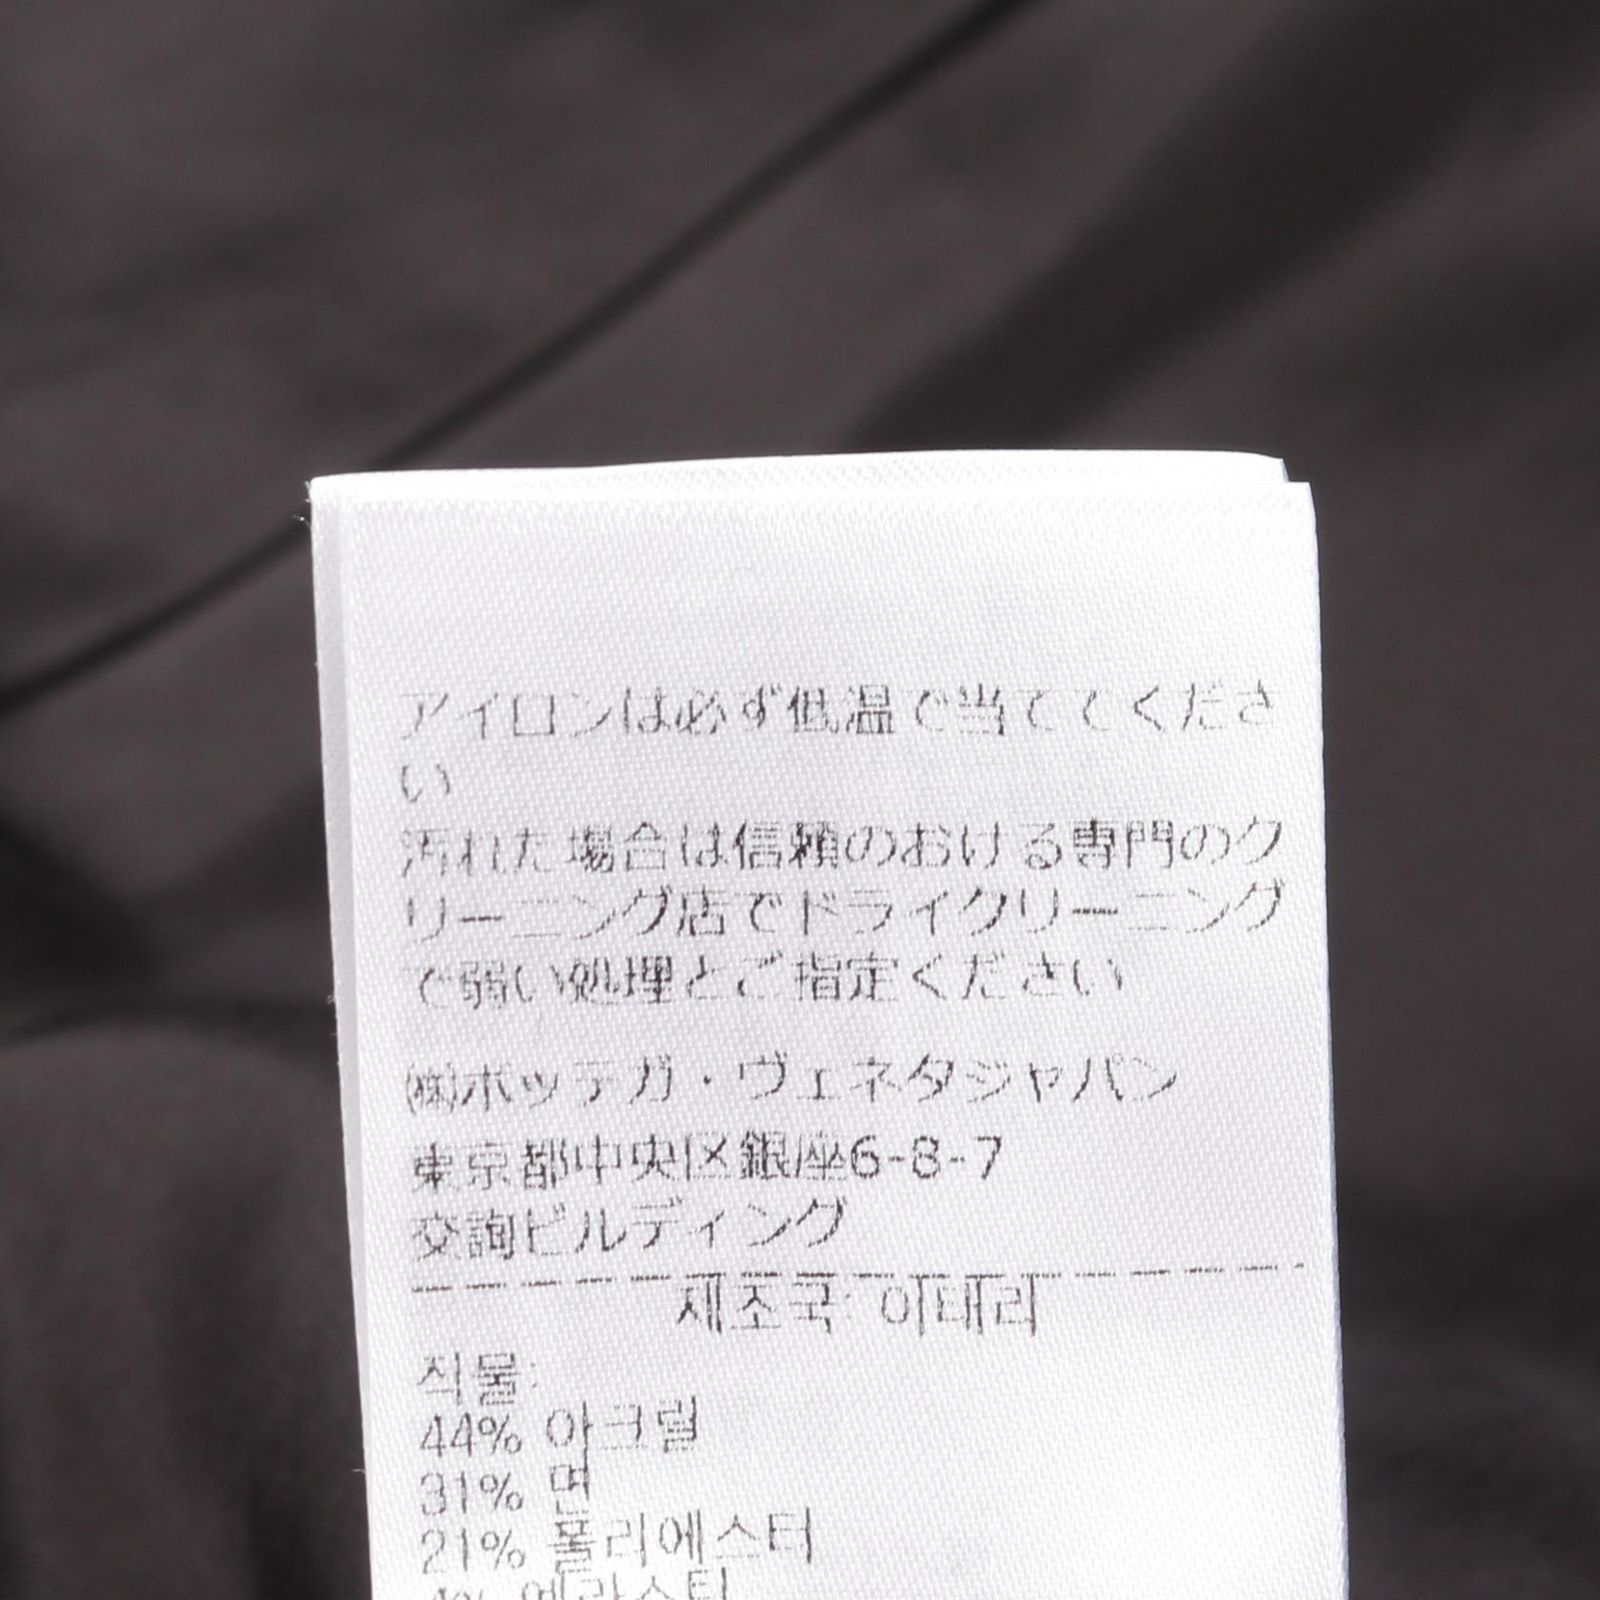 アイロンは必ず低温で当ててくださ
い
汚れた場合は信頼のおける専門のク
リーニング店でドライクリーニング
で弱い処理とご指定ください
㈱ボッテガ・ヴェネタジャパン
東京都中央区銀座6-8-7
交詢ビルディング
제조국: 이태리
직물:
44% 아크릴
31% 면
21% 폴리에스터
4%